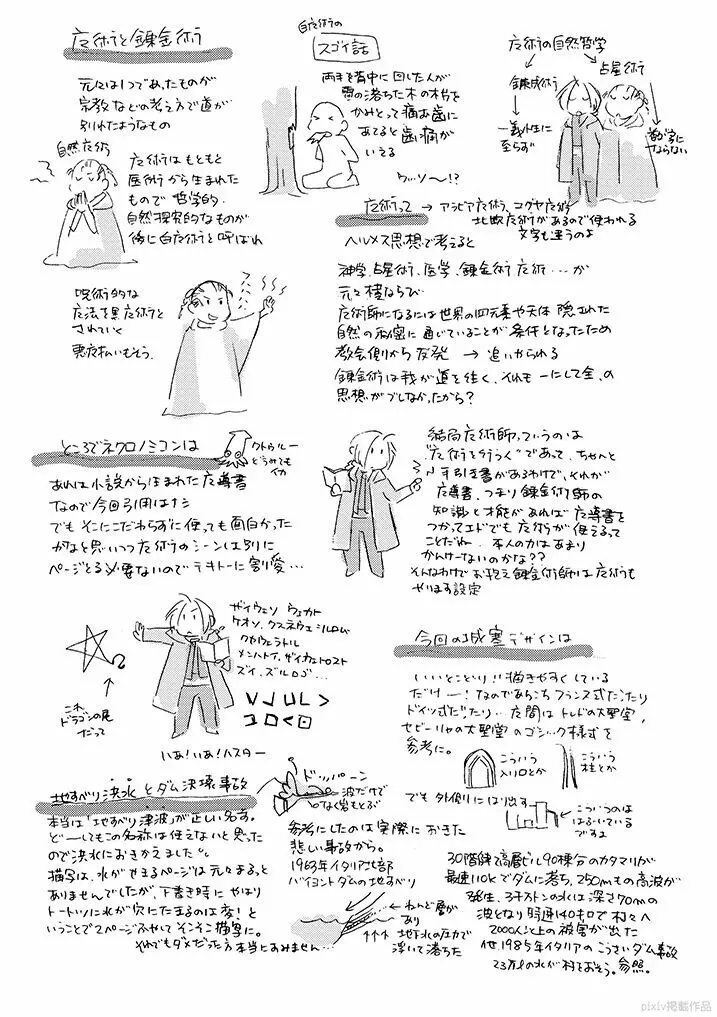 魔術と錬金術
元々は1つであったものが
宗教などの考え方で道が
別れたようなもの
自然魔術
魔術はもともと
医術から生まれた
もので哲学的、
自然探究的なものが
後に白魔術と呼ばれ
呪術的な
魔法を黒魔術と
されていく
悪魔払いもそう。
白魔術の
スゴイ話
両手を背中に回した人が
雷の落ちた木の木片を
かみとって痛む歯に
あてると歯の痛みが
いえる
ウッソ〜!?
魔術の自然哲学
錬成術
占星術
一義性に
至らず
魔術って → アラビア魔術、ユダヤ魔術
北欧魔術があるので使われる
文字も違うのよ
ヘルメス思想で考えると
神学、占星術、医学、錬金術 魔術…が
元々横ならび
魔術師になるには世界の四元素や天体 隠された
自然の秘密に通じていることが条件となったため
教会側から反発 → 追いやられる
錬金術は我が道を往く、それも一にして全、の
思想がブレなかったから?
ところでネクロノミコンは
クトゥルー
どうみても
イカ
あれは小説から生まれた魔導書
なので今回引用はナシ
でもそこにこだわらずに使っても面白かった
かなと思いつつ魔術のシーンは別に
ページとる必要ないのでテキトーに割愛…
結局魔術師っていうのは
"魔術を行う"であって、ちゃんと
手引き書があるわけで、それが
魔導書、つまり錬金術師の
知識と才能があれば魔導書を
つかってエドでも魔術が使えるって
ことだね 本人の力はあまり
かんけーないのかな??
そんなわけでお抱え錬金術師が魔術も
やります設定
これ
ドラゴンの尾
だって
ザイウェソ ウェカト
ケオソ、クスネウェ=ルロム
クセウェラトル
メンハトイ、ザイウェトロスト
ズイ、ズルロゴ…
いあ!いあ!ハスター
今回の城塞デザインは
いいとこどり!!描きやすくしている
だけー!なのであちこちフランス式だったり
ドイツ式だったり…広間はトレドの大聖堂、
セビーリャの大聖堂のゴシック様式を
参考に。
こういう
入り口とか
こういう
柱とか
でも外側にはり出す
こういうのは
はぶいている
ですよ
地すべり洪水とダム決壊事故
本当は「地すべり津波」が正しい名す。
どーしてもこの名称は使えないと思った
ので洪水におきかえました。
描写は、水がせまるページは元々まるっと
ありませんでしたが、下書き時にやはり
トートツに水が穴にたまるのは変!と
いうことで2ページふやしてそこそこ描写に。
それでもダメだった方本当にすみません…
ドッパーン
波だけで
なく岩もとぶ
参考にしたのは実際におきた
悲しい事故から。
1963年イタリア北部
バイヨントダムの地すべり
ねんど層が
あり
地下水の圧力で
浮いて落ちた
30階建て高層ビル90棟分のカタマリが
最速110kでダムに落ち、250mもの高波が
発生、3千万トンの水は深さ70mの
波となり時速140キロで村々へ
2000人以上の被害が出た
他1985年イタリアのこうさいダム事故
23万tの水が村をおそう。参照。
pixiv掲載作品